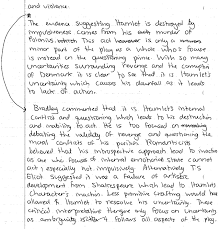 and violence.
The evidence suggesting Hamlet is destroyed by
impulsiveness comes from his early murder of
Polonius. This however is only a
minor part of the play as a whole whose focus
is instead on the questioning prince. With so many
uncertainties surrounding revenge and the corruption
of Denmark it is clear to see that it is Hamlet's
uncertainty which causes his downfall as it leads
to lack of action.
Bradley commented that it is Hamlet's internal
conflict and questioning which lead to his destruction
and inability to act. He is too focused on
debating the validity of revenge and questioning the
moral conflicts of his position. Romanticists
believed that his introspective approach lead to inaction
as one who focuses of internal emotional state cannot
act, especially not impulsively. Alternatively T.S
Eliot suggested it was a failure of artistic
development from Shakespeare which lead to Hamlet's
character's inaction. Less primitive crafting would have
allowed Hamlet to resolve his uncertainty. These
critical interpretations therefore only focus on uncertainty
as ambiguity follows all aspects of the play.